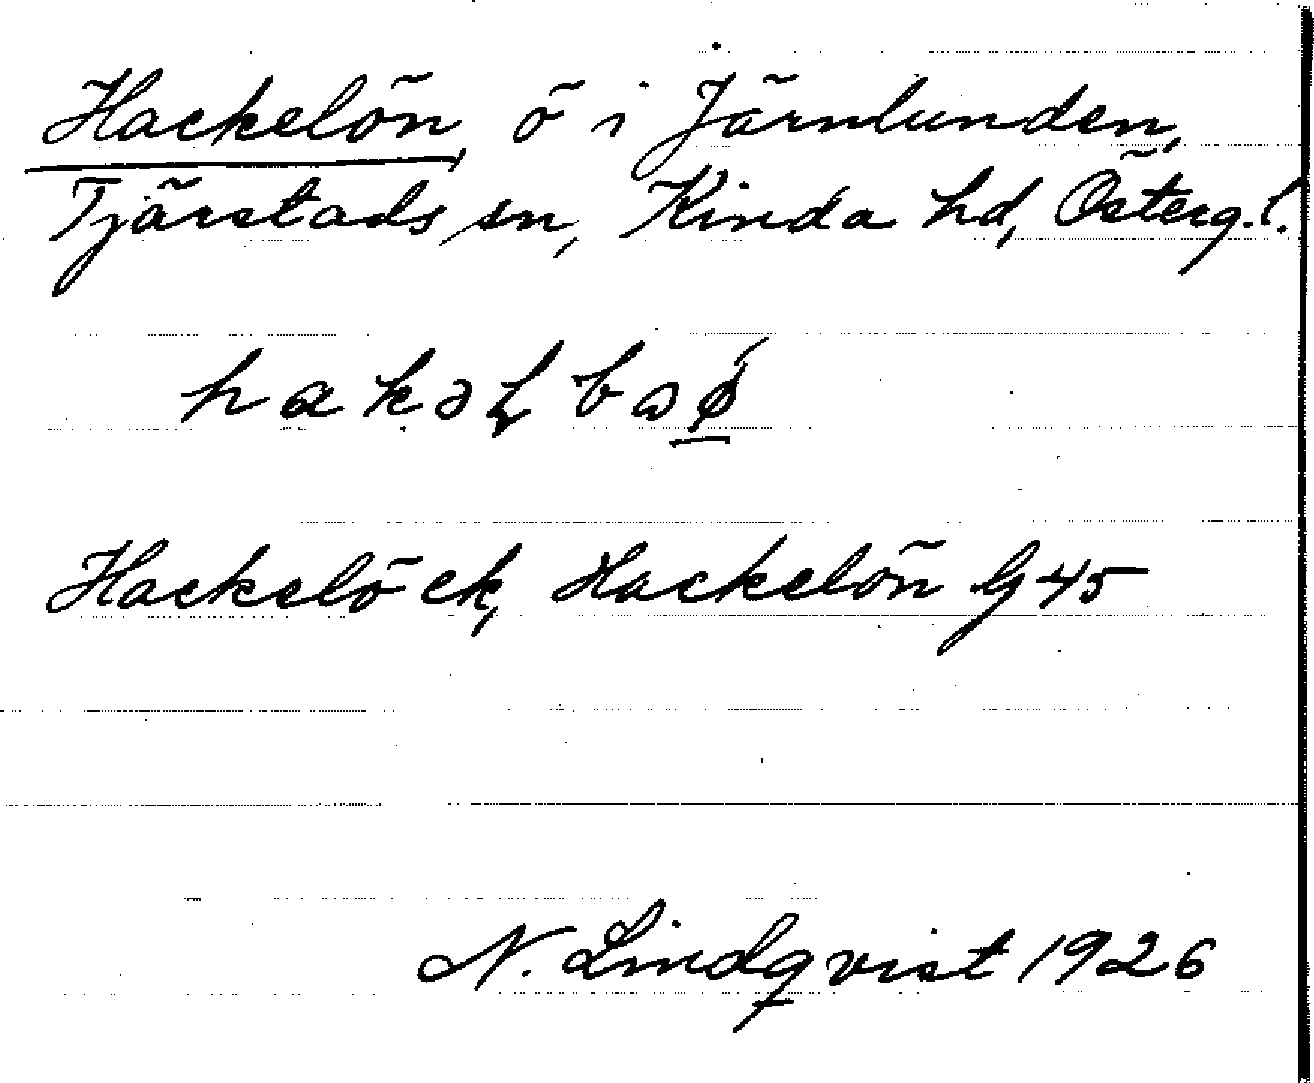 Hackelön, ö i Järnlunden,
Tjärstads sn, Kinda hd, Österg. l.
Hackelö ek, Hackelön G 45
N. Lindqvist 1926